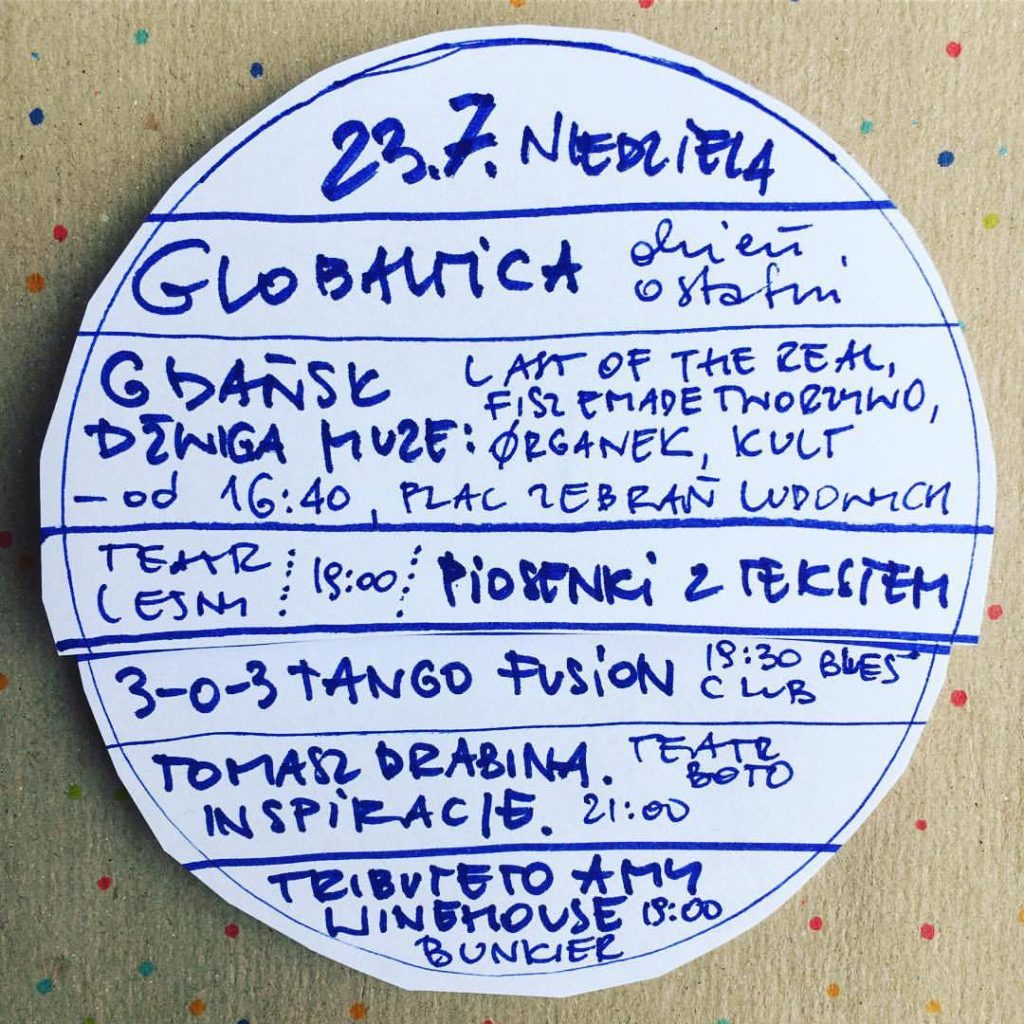 23.7. NIEDZIELA
GLOBALTICA dzień
ostatni
GDAŃSK LAST OF THE REAL,
DŹWIGA MUZE: FISZ EMADE TWORZYWO,
ØRGANEK, KULT
– od 16:40, PLAC ZEBRAŃ LUDOWYCH
TEATR LEŚNY 19:00 PIOSENKI Z TEKSTEM
3-0-3 TANGO FUSION 19:30 BLUES
CLUB
TOMASZ DRABINA. TEATR
BOTO
INSPIRACJE. 21:00
TRIBUTE TO AMY
WINEHOUSE 19:00
BUNKIER